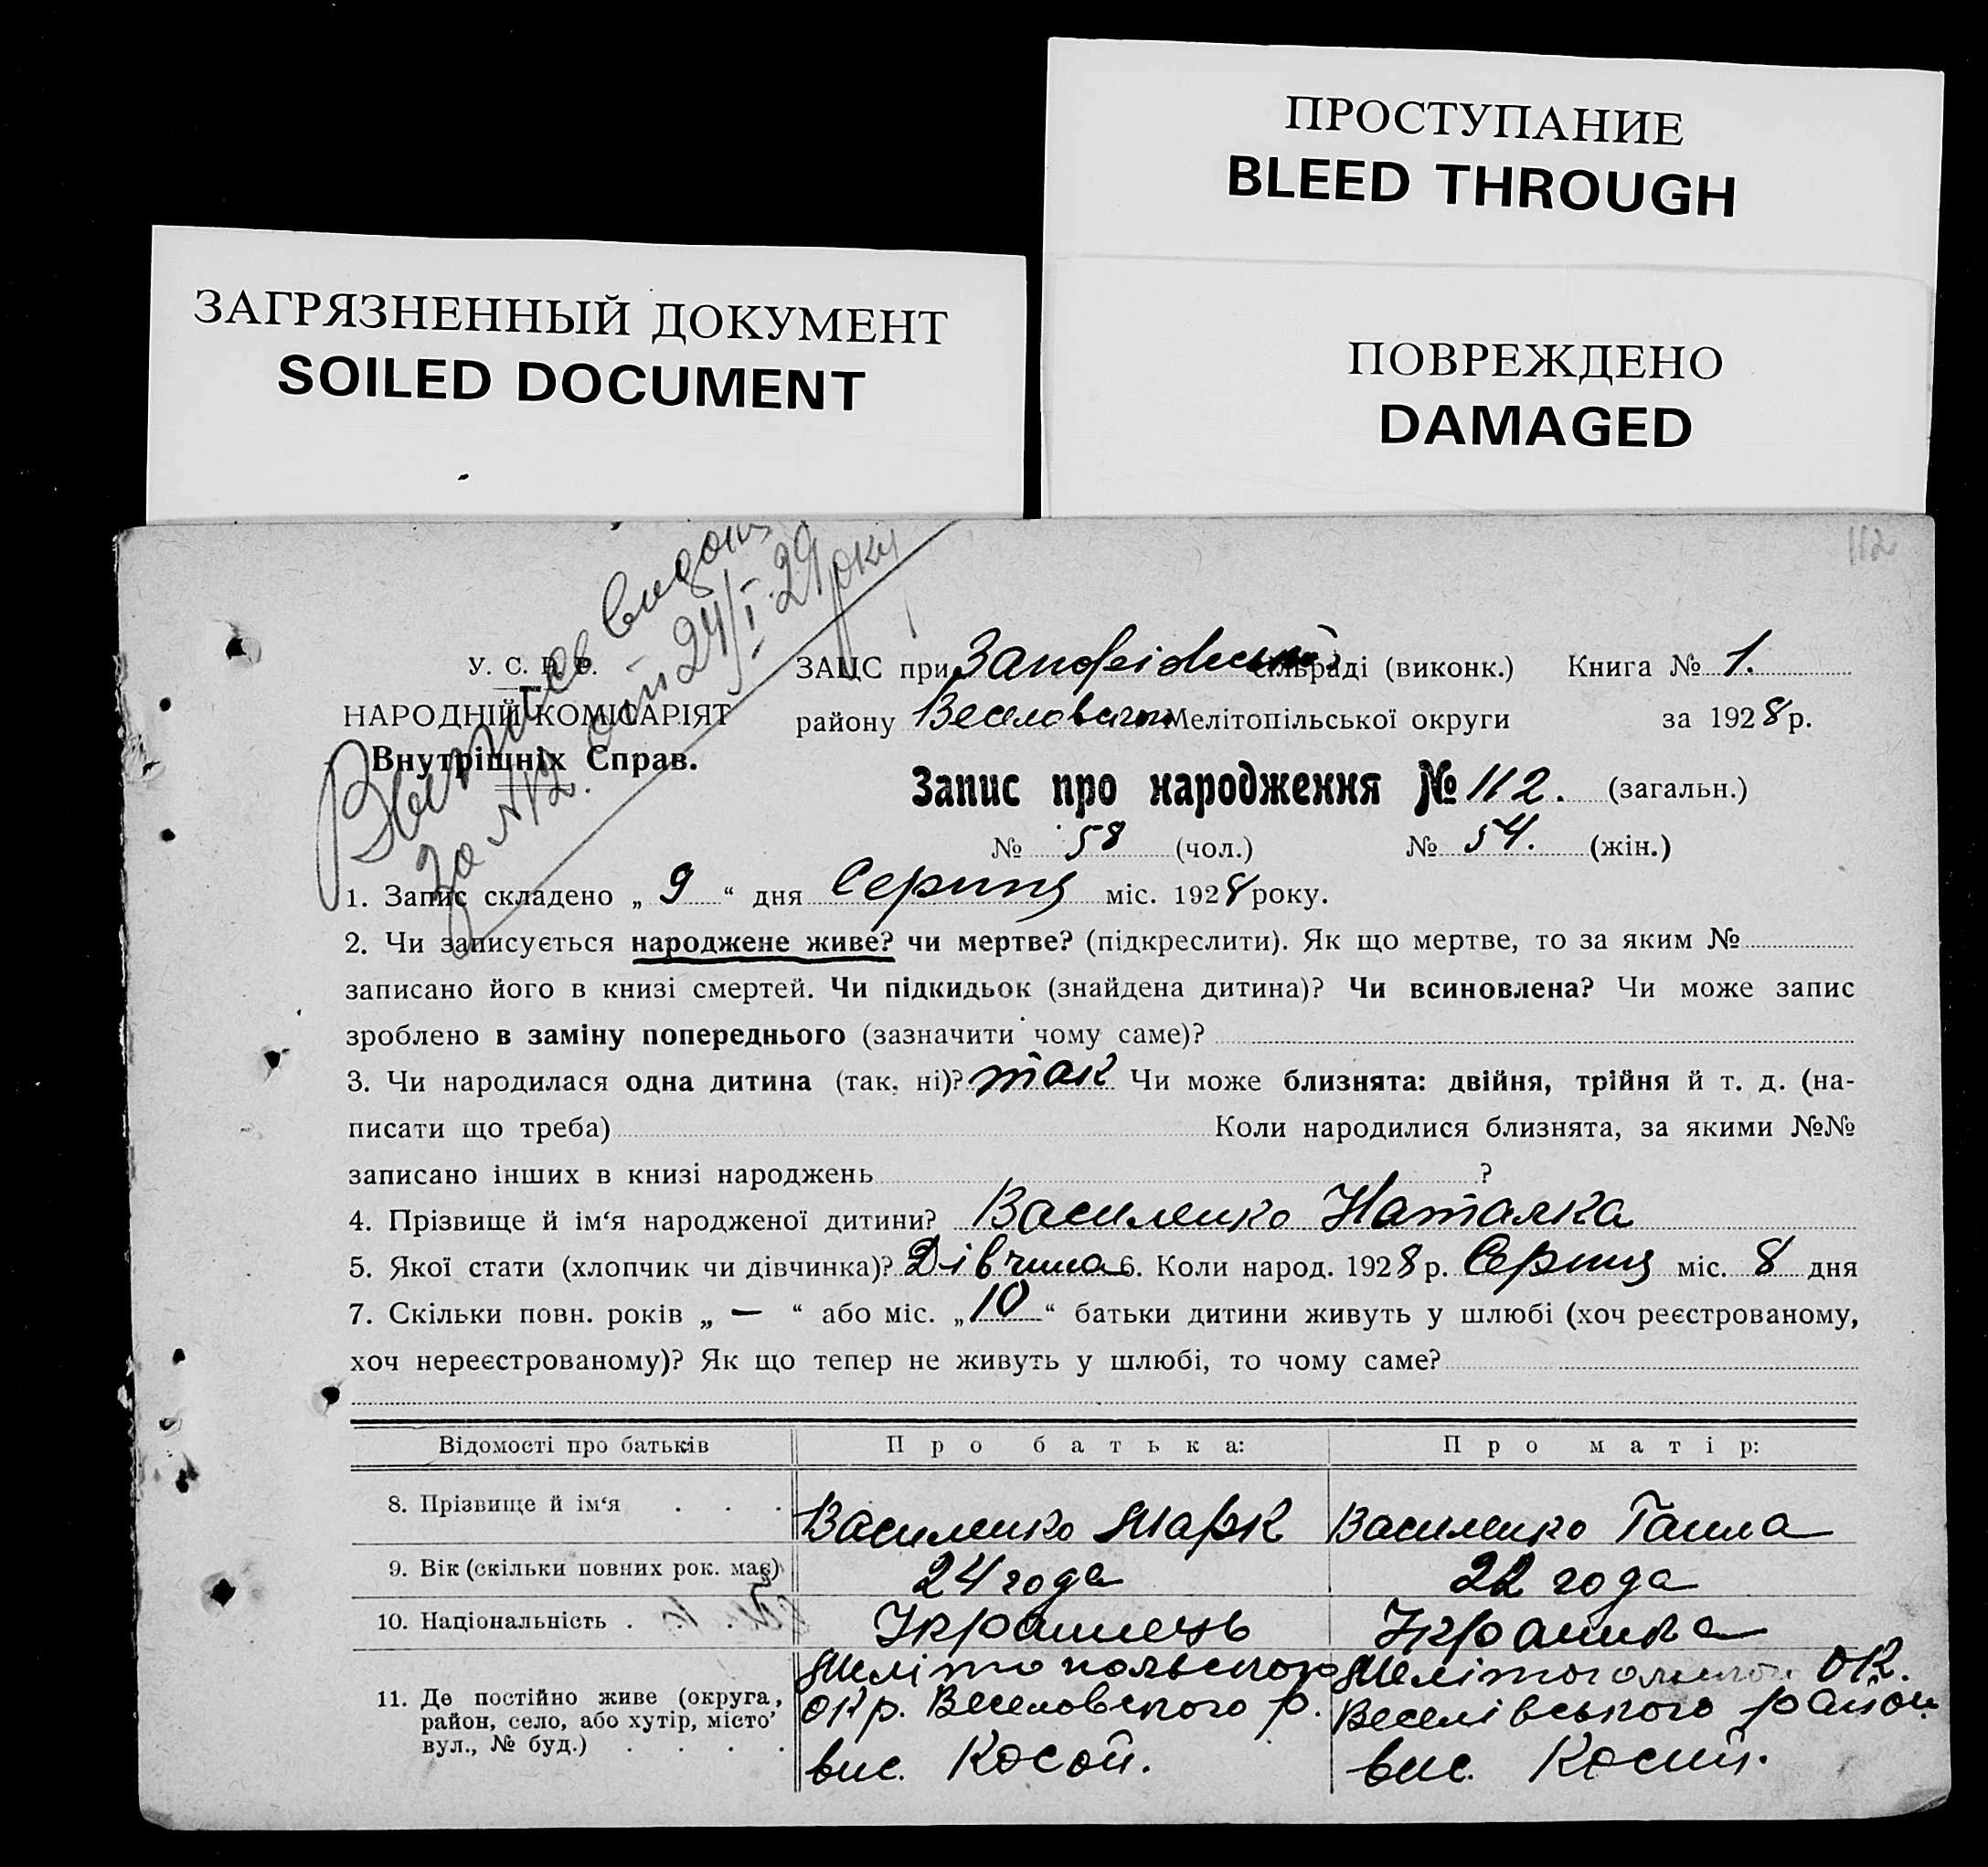 ПРОСТУПАНИЕ
BLEED THROUGH
ЗАГРЯЗНЕННЫЙ ДОКУМЕНТ
SOILED DOCUMENT
ПОВРЕЖДЕНО
DAMAGED
112
за №12. 24/I-29 року
У. С. Р. Р.
НАРОДНІЙ КОМІСАРІЯТ
Внутрішніх Справ.
ЗАЦС при сільраді (виконк.) Книга № 1.
району Веселовского Мелітопільської округи за 1928 р.
Запис про народження № 112. (загальн.)
№ 58 (чол.) № 54. (жін.)
1. Запис складено „ 9 “ дня Серпня міс. 1928 року.
2. Чи записується народжене живе? чи мертве? (підкреслити). Як що мертве, то за яким №
записано його в книзі смертей. Чи підкидьок (знайдена дитина)? Чи всиновлена? Чи може запис
зроблено в заміну попереднього (зазначити чому саме)?
3. Чи народилася одна дитина (так, ні)? так Чи може близнята: двійня, трійня й т. д. (на-
писати що треба) Коли народилися близнята, за якими №№
записано інших в книзі народжень ?
4. Прізвище й ім‘я народженої дитини? Василенко Наталка
5. Якої стати (хлопчик чи дівчинка)? Дівчина 6. Коли народ. 1928 р. Серпня міс. 8 дня
7. Скільки повн. років „ — “ або міс. „ 10 “ батьки дитини живуть у шлюбі (хоч реєстрованому,
хоч нереєстрованому)? Як що тепер не живуть у шлюбі, то чому саме?
Відомості про батьків Про батька: Про матір:
8. Прізвище й ім‘я . . . Василенко Марк Василенко Ганна
9. Вік (скільки повних рок. має) 24 года 22 года
10. Національність . Українець Українка
11. Де постійно живе (округа, район, село, або хутір, місто’ вул., № буд.) . . . .
Мелітопольского окр. Веселовского р. вис. Косой.
ок. Веселівського район. вис. Косий.